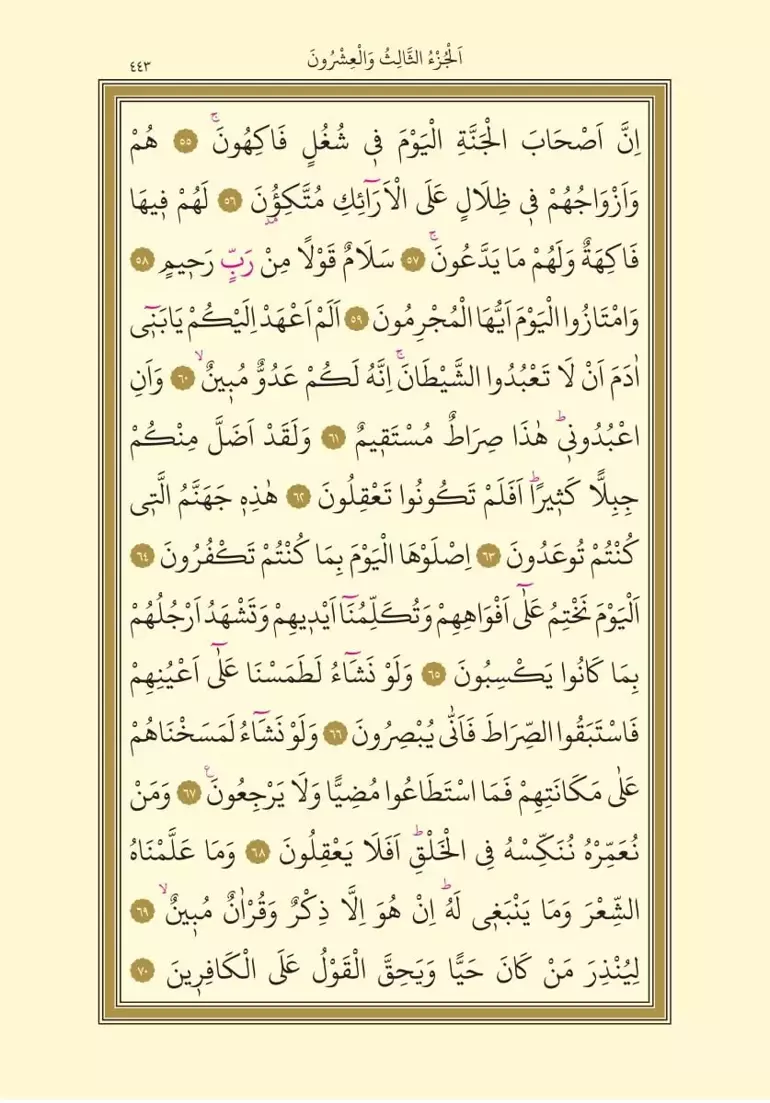 اَلْجُزْءُ الثَّالِثُ وَالْعِشْرُونَ
٤٤٣
اِنَّ اَصْحَابَ الْجَنَّةِ الْيَوْمَ ف۪ي شُغُلٍ فَاكِهُونَۚ ﴿٥٥﴾ هُمْ
وَاَزْوَاجُهُمْ ف۪ي ظِلَالٍ عَلَى الْاَرَٓائِكِ مُتَّكِؤُ۫نَ ﴿٥٦﴾ لَهُمْ ف۪يهَا
فَاكِهَةٌ وَلَهُمْ مَا يَدَّعُونَۚ ﴿٥٧﴾ سَلَامٌ قَوْلًا مِنْ رَبٍّ رَح۪يمٍ ﴿٥٨﴾
وَامْتَازُوا الْيَوْمَ اَيُّهَا الْمُجْرِمُونَ ﴿٥٩﴾ اَلَمْ اَعْهَدْ اِلَيْكُمْ يَابَن۪ٓي
اٰدَمَ اَنْ لَا تَعْبُدُوا الشَّيْطَانَۚ اِنَّهُ لَكُمْ عَدُوٌّ مُب۪ينٌۙ ﴿٦٠﴾ وَاَنِ
اعْبُدُون۪يۜ هٰذَا صِرَاطٌ مُسْتَق۪يمٌ ﴿٦١﴾ وَلَقَدْ اَضَلَّ مِنْكُمْ
جِبِلًّا كَث۪يرًاۜ اَفَلَمْ تَكُونُوا تَعْقِلُونَ ﴿٦٢﴾ هٰذِه۪ جَهَنَّمُ الَّت۪ي
كُنْتُمْ تُوعَدُونَ ﴿٦٣﴾ اِصْلَوْهَا الْيَوْمَ بِمَا كُنْتُمْ تَكْفُرُونَ ﴿٦٤﴾
اَلْيَوْمَ نَخْتِمُ عَلٰٓى اَفْوَاهِهِمْ وَتُكَلِّمُنَٓا اَيْد۪يهِمْ وَتَشْهَدُ اَرْجُلُهُمْ
بِمَا كَانُوا يَكْسِبُونَ ﴿٦٥﴾ وَلَوْ نَشَٓاءُ لَطَمَسْنَا عَلٰٓى اَعْيُنِهِمْ
فَاسْتَبَقُوا الصِّرَاطَ فَاَنّٰى يُبْصِرُونَ ﴿٦٦﴾ وَلَوْ نَشَٓاءُ لَمَسَخْنَاهُمْ
عَلٰى مَكَانَتِهِمْ فَمَا اسْتَطَاعُوا مُضِيًّا وَلَا يَرْجِعُونَ۟ ﴿٦٧﴾ وَمَنْ
نُعَمِّرْهُ نُنَكِّسْهُ فِي الْخَلْقِۜ اَفَلَا يَعْقِلُونَ ﴿٦٨﴾ وَمَا عَلَّمْنَاهُ
الشِّعْرَ وَمَا يَنْبَغ۪ي لَهُۜ اِنْ هُوَ اِلَّا ذِكْرٌ وَقُرْاٰنٌ مُب۪ينٌۙ ﴿٦٩﴾
لِيُنْذِرَ مَنْ كَانَ حَيًّا وَيَحِقَّ الْقَوْلُ عَلَى الْكَافِر۪ينَ ﴿٧٠﴾